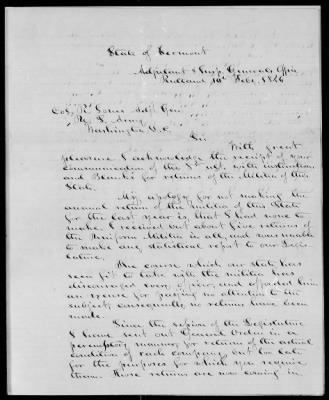 State of Vermont
Adjutant & Insp. Generals Office
Rutland, 10th Feb, 1846
Col. R. Jones Adj. Gen.
U. S. Army
Washington D.C.
Sir
With great
pleasure I acknowledge the receipt of your
communication of the with instructions
and Blanks for returns of the Militia of this
State.
My apology for not making the
annual return of the Militia of this State
for the last year is, that I had none to
make. I received but about five returns of
the Uniform Militia in all, and was unable
to make any statistical report to our Legis-
lature.
The course which our state has
seen fit to take with the militia has
discouraged every officer, and afforded him
an excuse for paying no attention to the
subject, consequently no returns have been
made.
Since the session of the Legislature
I have sent out General Orders in a
peremptory manner, for returns of the actual
condition of each company, but too late
for the purposes for which you require
them. Those returns are now coming in,